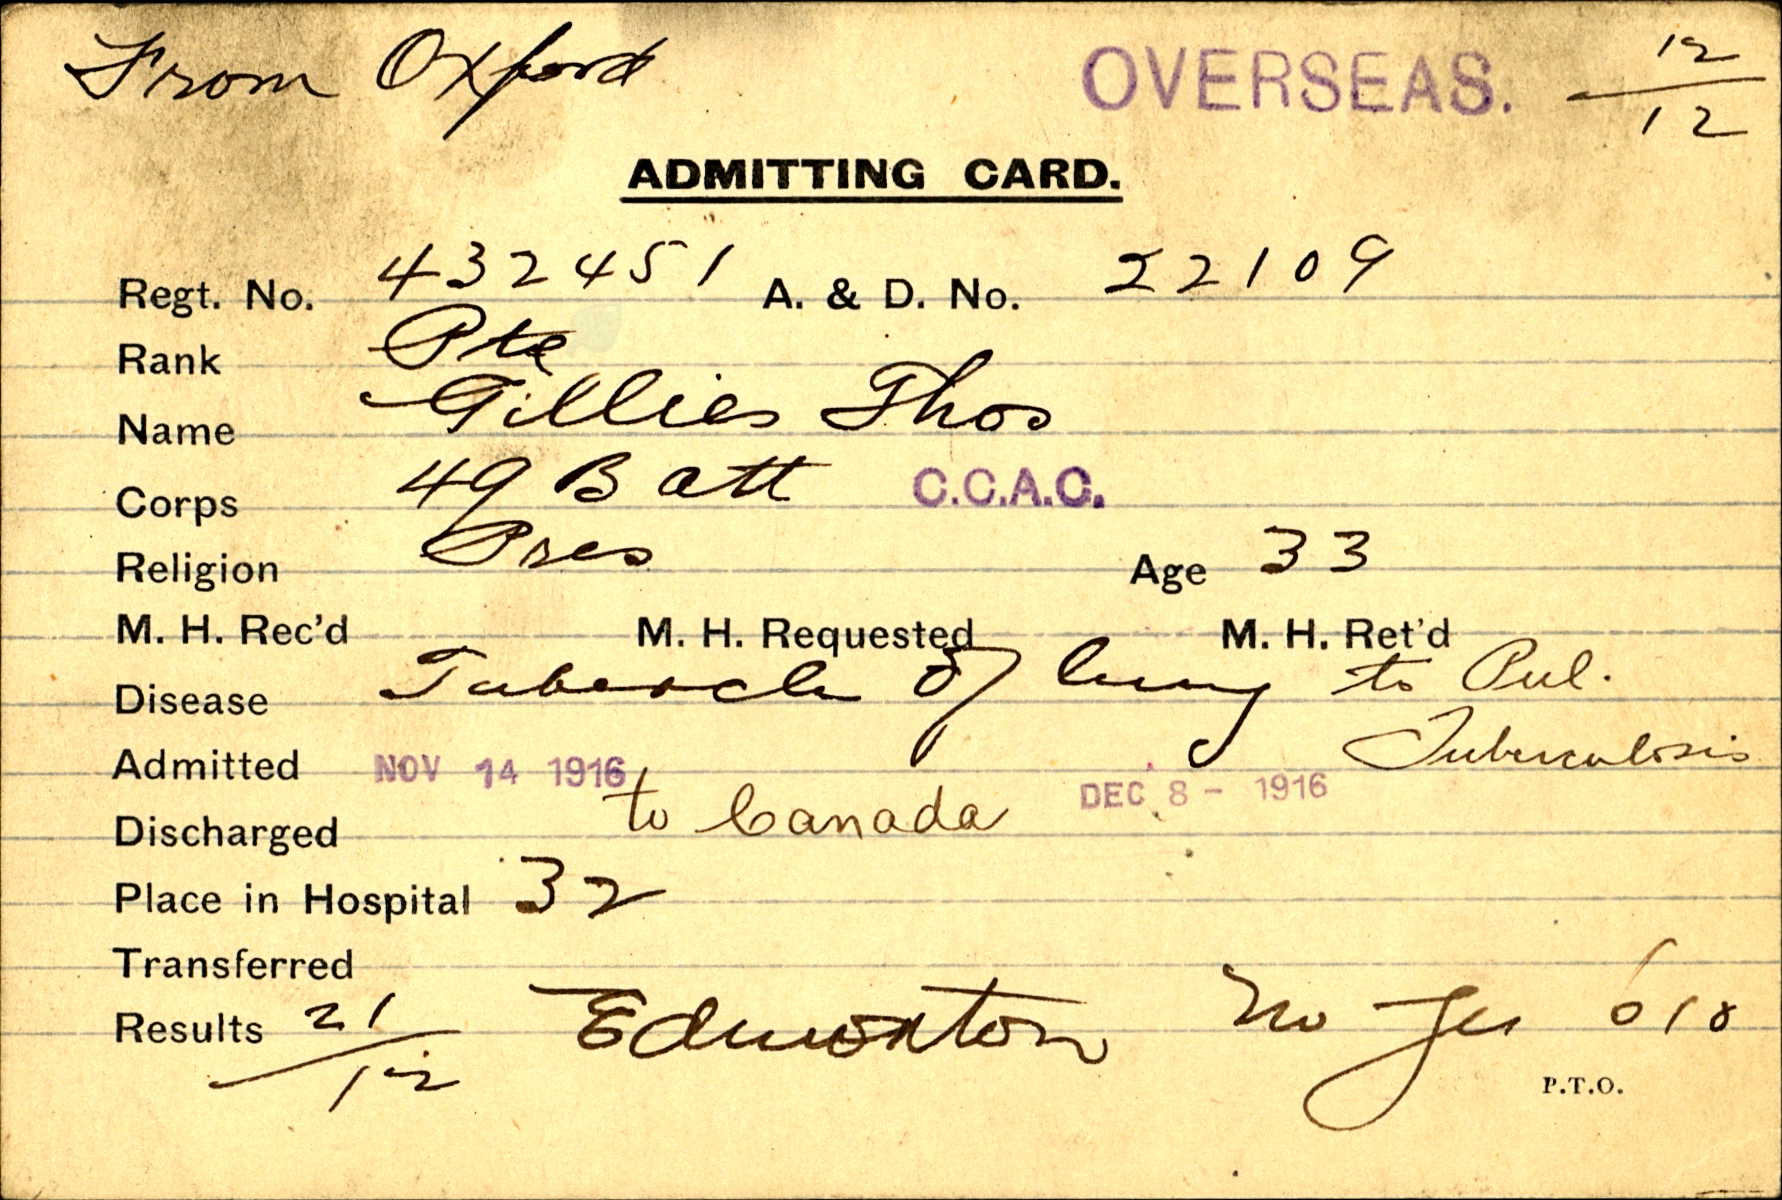 From Oxford OVERSEAS. 12/12
ADMITTING CARD.
Regt. No. 432451 A. & D. No. 22109
Rank Pte
Name Gillies Thos
Corps 49 Batt C.C.A.C.
Religion Pres Age 33
M. H. Rec'd M. H. Requested M. H. Ret'd
Disease Tubercle of lung to Pul.
Tuberculosis
Admitted NOV 14 1916
Discharged to Canada DEC 8 - 1916
Place in Hospital 32
Transferred
Results 21/12 Edmonton
P.T.O.